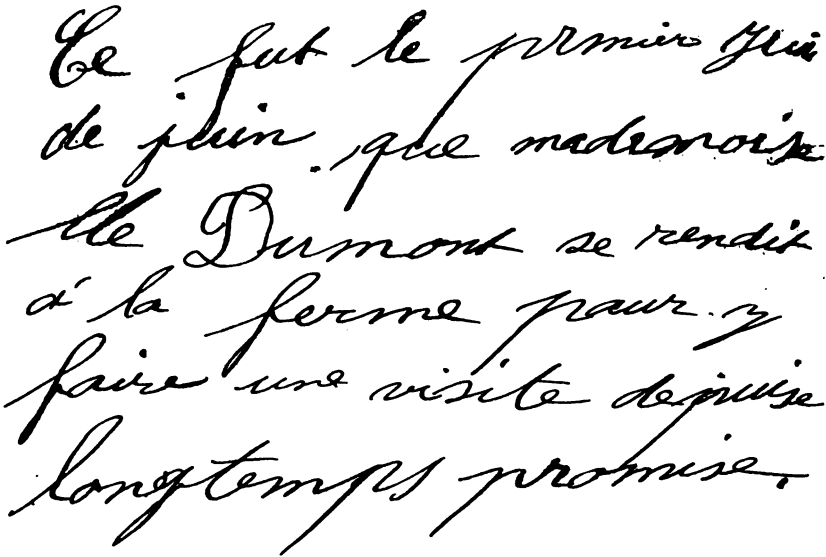 Ce fut le prmier
de juin que mademoise
lle Dumont se rendit
à la ferme pour y
faire une visite depuise
longtemps promise.